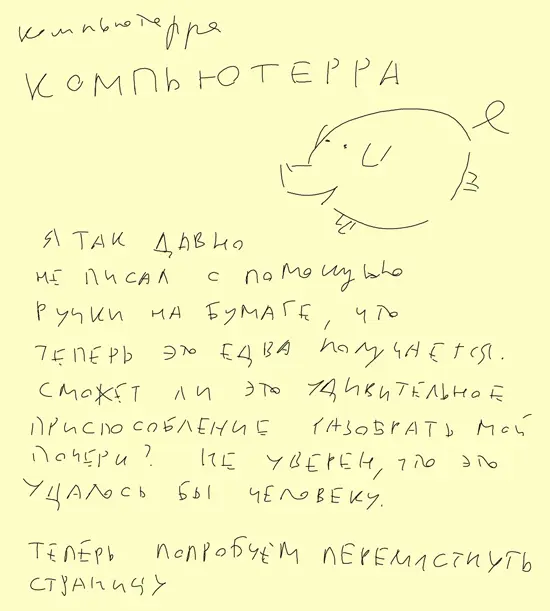 компьютерра
КОМПЬЮТЕРРА
Я ТАК ДАВНО
НЕ ПИСАЛ С ПОМОЩЬЮ
РУЧКИ НА БУМАГЕ, ЧТО
ТЕПЕРЬ ЭТО ЕДВА ПОЛУЧАЕТСЯ.
СМОЖЕТ ЛИ ЭТО УДИВИТЕЛЬНОЕ
ПРИСПОСОБЛЕНИЕ РАЗОБРАТЬ МОЙ
ПОЧЕРК? НЕ УВЕРЕН, ЧТО ЭТО
УДАЛОСЬ БЫ ЧЕЛОВЕКУ.
ТЕПЕРЬ ПОПРОБУЕМ ПЕРЕМЛСТНУТЬ
СТРАНИЦУ